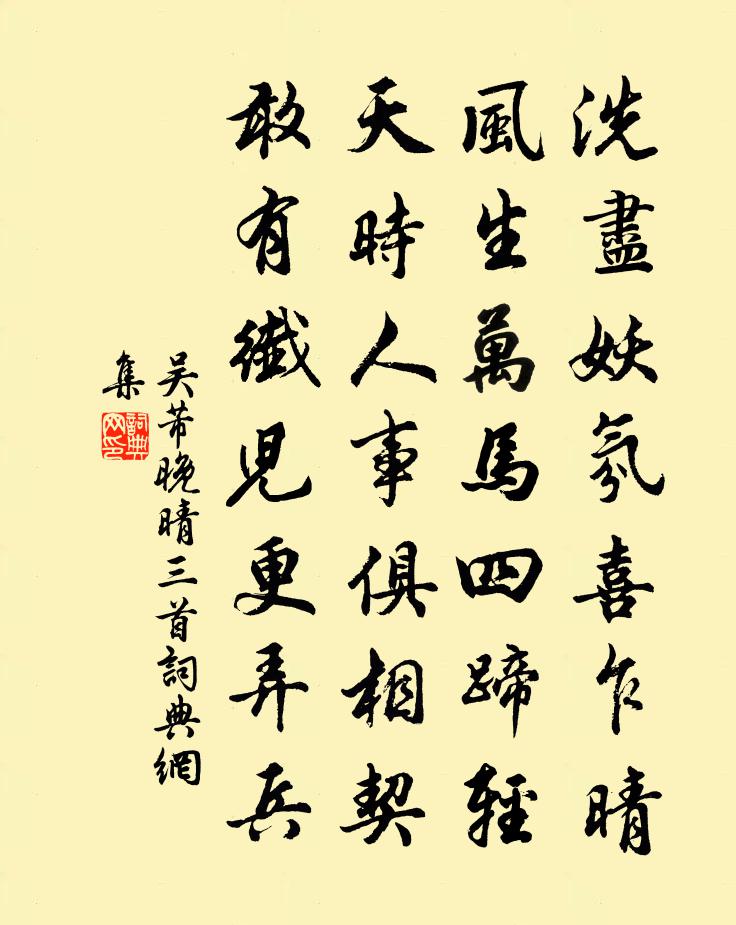 洗盡妖氛喜乍晴
風生萬馬四蹄輕
天時人事俱相契
敢有纖兒更弄兵
吳芾晚晴三首詞典網
集
詞典
网印